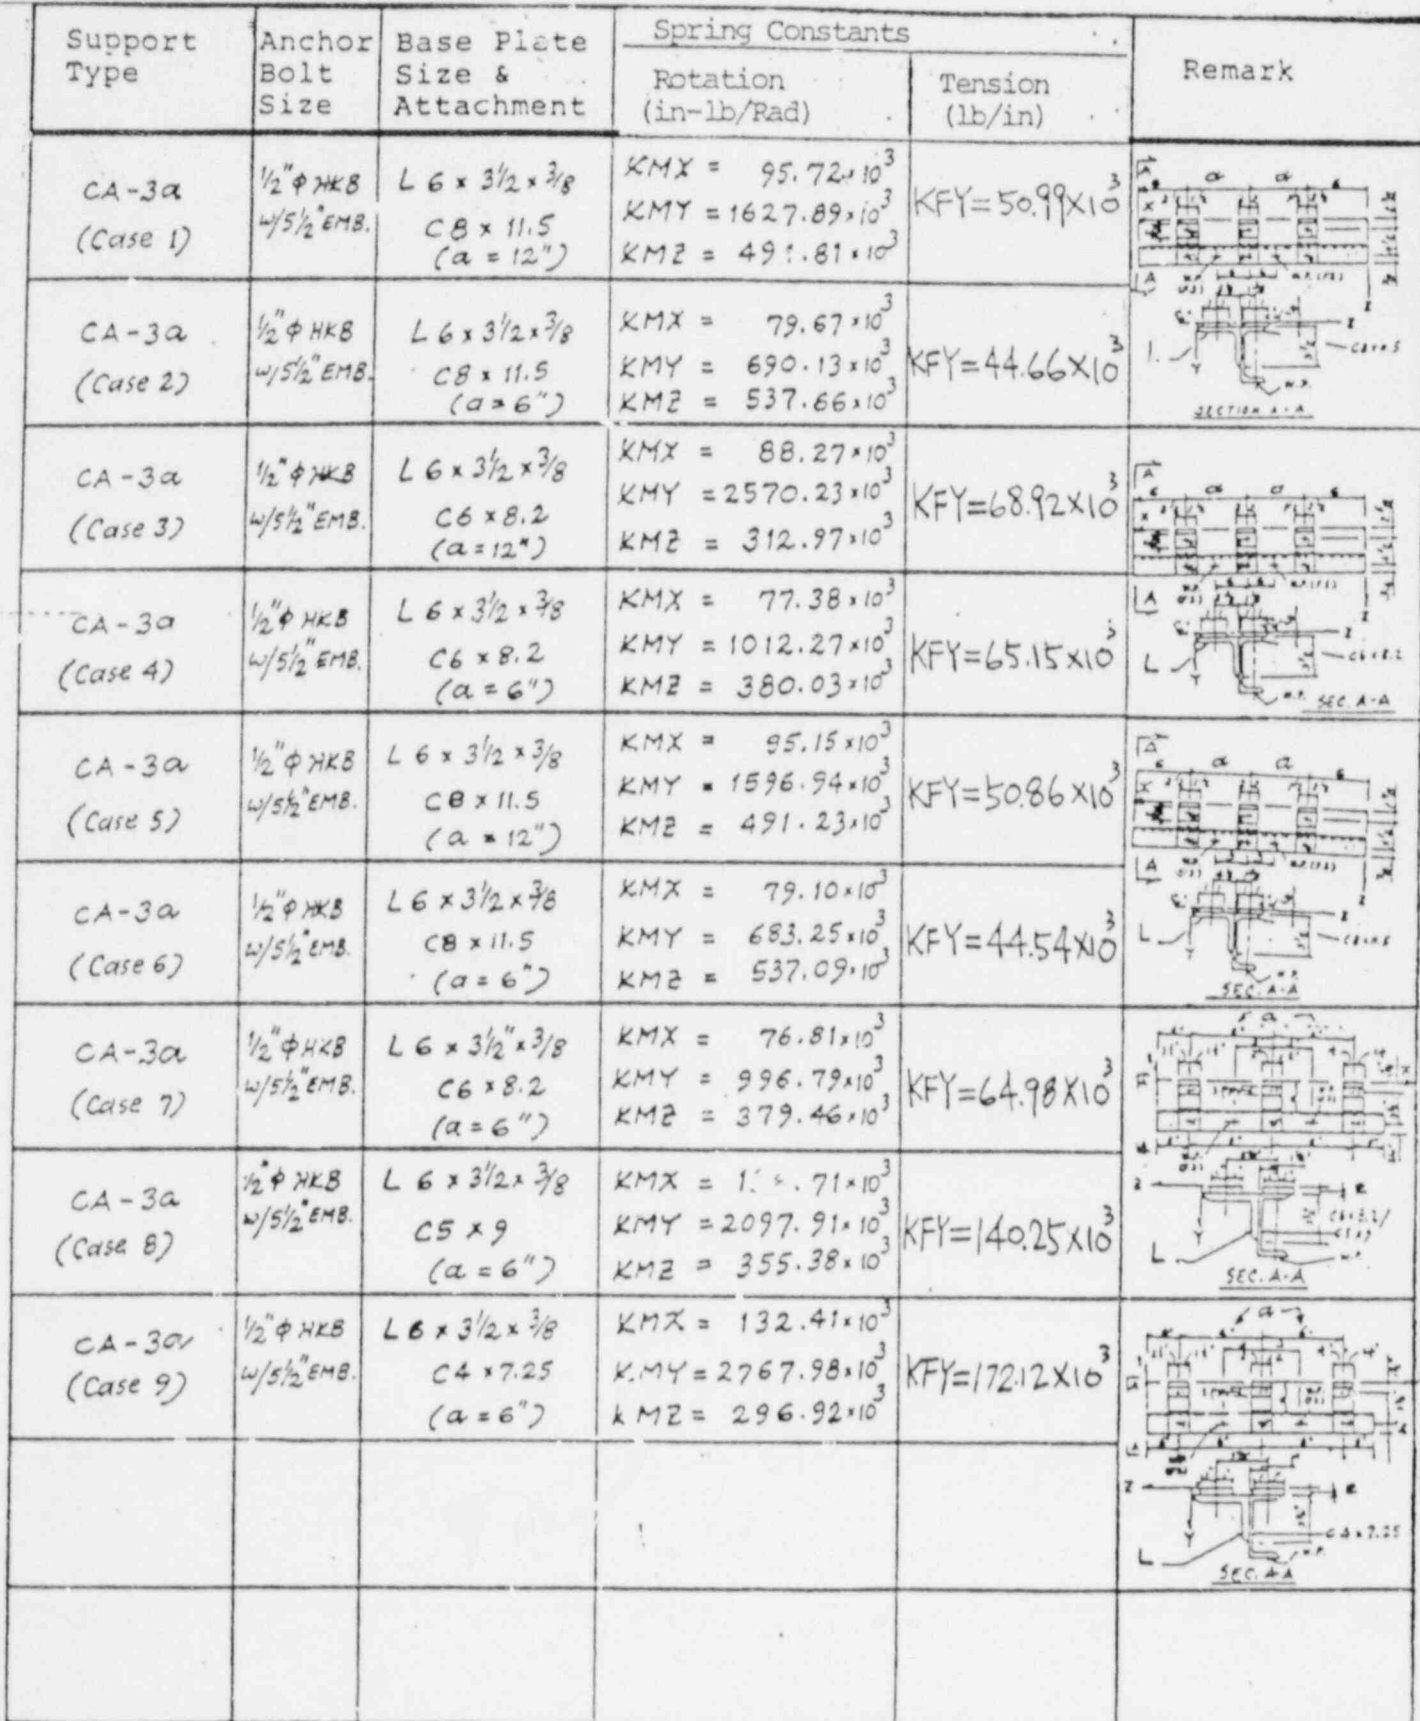 Support Type
Anchor Bolt Size
Base Plate Size & Attachment
Spring Constants
Rotation (in-lb/Rad)
Tension (lb/in)
Remark
CA-3a (Case 1)
1/2"φ HKB w/5 1/2" EMB.
L 6 x 3 1/2 x 3/8
C8 x 11.5
(a = 12")
KMX = 95.72x10³
KMY = 1627.89x10³
KMZ = 49 .81x10³
KFY=50.99X10³
CA-3a (Case 2)
1/2"φ HKB w/5 1/2" EMB.
L 6 x 3 1/2 x 3/8
C8 x 11.5
(a = 6")
KMX = 79.67x10³
KMY = 690.13x10³
KMZ = 537.66x10³
KFY=44.66X10³
SECTION A-A
CA-3a (Case 3)
1/2"φ HKB w/5 1/2" EMB.
L 6 x 3 1/2 x 3/8
C6 x 8.2
(a = 12")
KMX = 88.27x10³
KMY = 2570.23x10³
KMZ = 312.97x10³
KFY=68.92X10³
CA-3a (Case 4)
1/2"φ HKB w/5 1/2" EMB.
L 6 x 3 1/2 x 3/8
C6 x 8.2
(a = 6")
KMX = 77.38x10³
KMY = 1012.27x10³
KMZ = 380.03x10³
KFY=65.15X10³
SEC. A-A
CA-3a (Case 5)
1/2"φ HKB w/5 1/2" EMB.
L 6 x 3 1/2 x 3/8
C8 x 11.5
(a = 12")
KMX = 95.15x10³
KMY = 1596.94x10³
KMZ = 491.23x10³
KFY=50.86X10³
CA-3a (Case 6)
1/2"φ HKB w/5 1/2" EMB.
L 6 x 3 1/2 x 3/8
C8 x 11.5
(a = 6")
KMX = 79.10x10³
KMY = 683.25x10³
KMZ = 537.09x10³
KFY=44.54X10³
SEC. A-A
CA-3a (Case 7)
1/2"φ HKB w/5 1/2" EMB.
L 6 x 3 1/2" x 3/8
C6 x 8.2
(a = 6")
KMX = 76.81x10³
KMY = 996.79x10³
KMZ = 379.46x10³
KFY=64.98X10³
CA-3a (Case 8)
1/2"φ HKB w/5 1/2" EMB.
L 6 x 3 1/2 x 3/8
C5 x 9
(a = 6")
KMX = .71x10³
KMY = 2097.91x10³
KMZ = 355.38x10³
KFY=140.25X10³
SEC. A-A
CA-3a (Case 9)
1/2"φ HKB w/5 1/2" EMB.
L 6 x 3 1/2 x 3/8
C4 x 7.25
(a = 6")
KMX = 132.41x10³
KMY = 2767.98x10³
KMZ = 296.92x10³
KFY=172.12X10³
C4x7.25
SEC. A-A